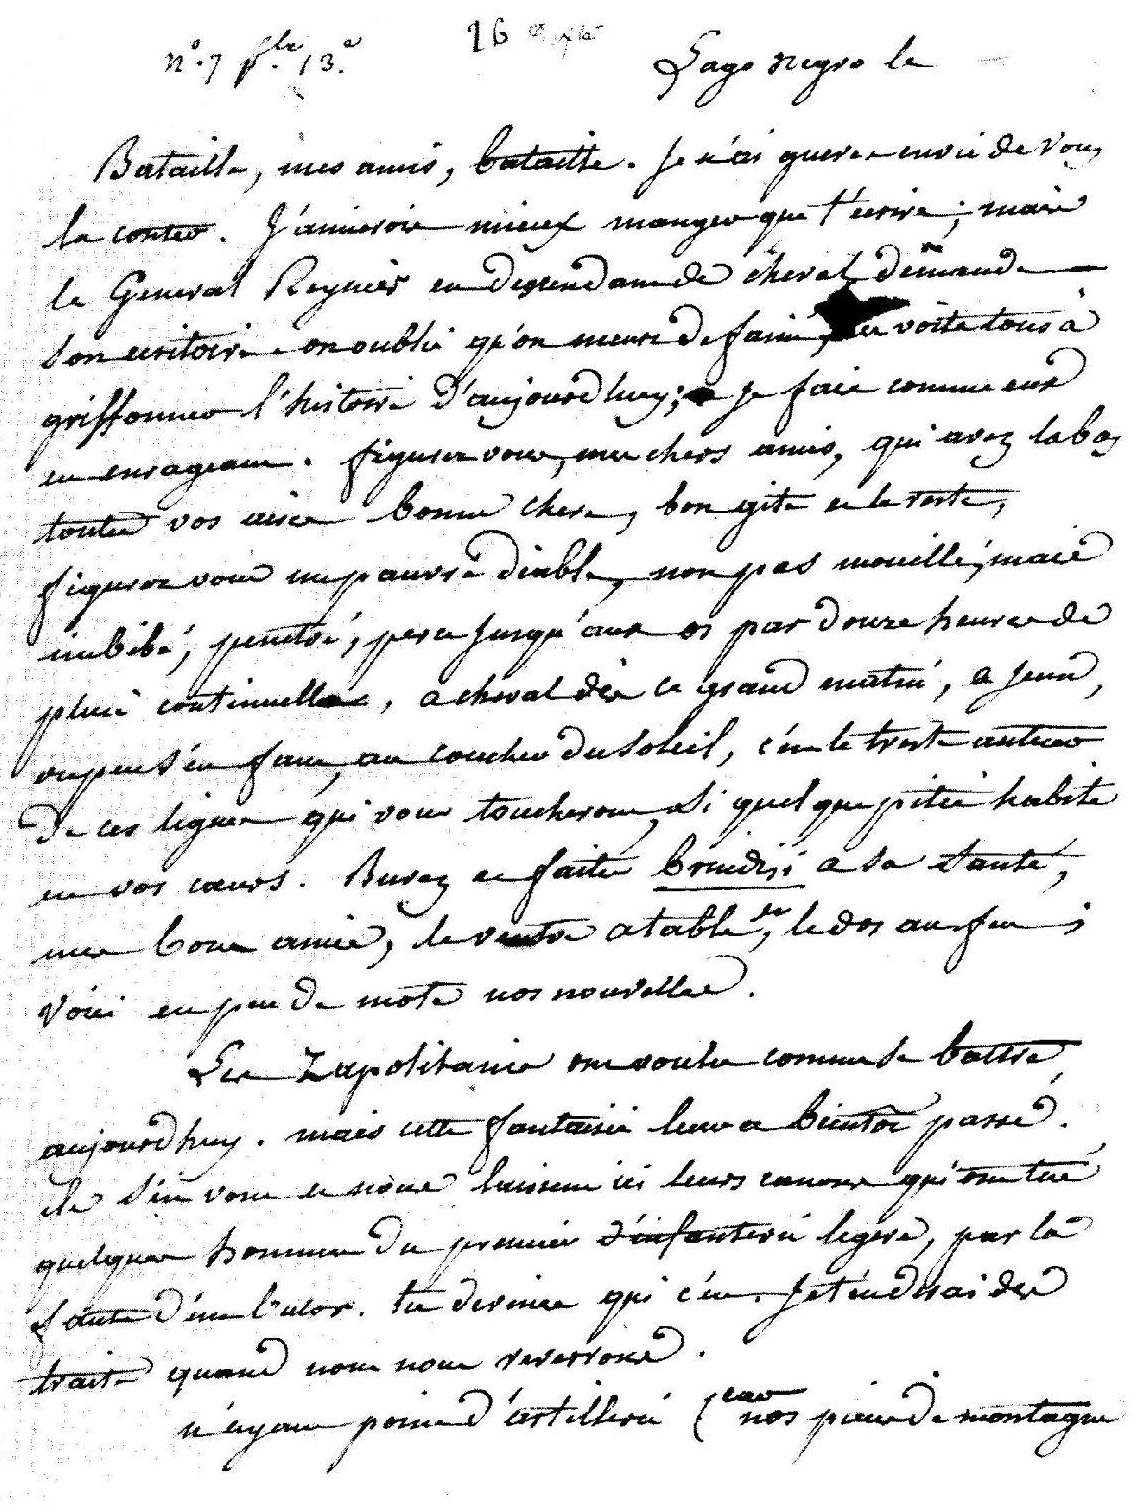 n°. 7 p.le 13.e
16
Lago negro le
Bataille, mes amis, bataille. Je n'ai guere envie de vous
la conter. J'aimerois mieux manger que t'ecrire; mais
le General Reynier en descendant de cheval demande
son ecritoire. on oublie qu'on meurt de faim, les voila tous à
griffonner l'histoire d'aujourdhuy; je fais comme eux
en enrageant. figurez vous, mes chers amis, qui avez la bas
toutes vos aises bonne chere, bon gite et le reste,
figurez vous un pauvre diable, non pas mouillé, mais
imbibé, penetré, percé jusqu'aux os par douze heures de
pluie continuelle, a cheval dès ce grand matin, a jeun,
ou peu s'en faut, au coucher du soleil, c'est le triste auteur
de ces lignes qui vous toucheront, si quelque pitié habite
en vos cœurs. Buvez et faites brindisi a sa santé,
mes bons amis, le ventre a table, le dos au feu;
Voici en peu de mots nos nouvelles.
Les Zapolitains ont voulu comme se battre
aujourdhuy. mais cette fantaisie leur a bientôt passé.
ils s'en vont et nous laissent ici leurs canons qui ont tué
quelques hommes du premier d'infanterie legere, par la
faute d'un butor. tu devines qui c'est. Je t'en dirai des
traits quand nous nous reverrons.
n'ayant point d'artillerie (car nos pieces de montagne